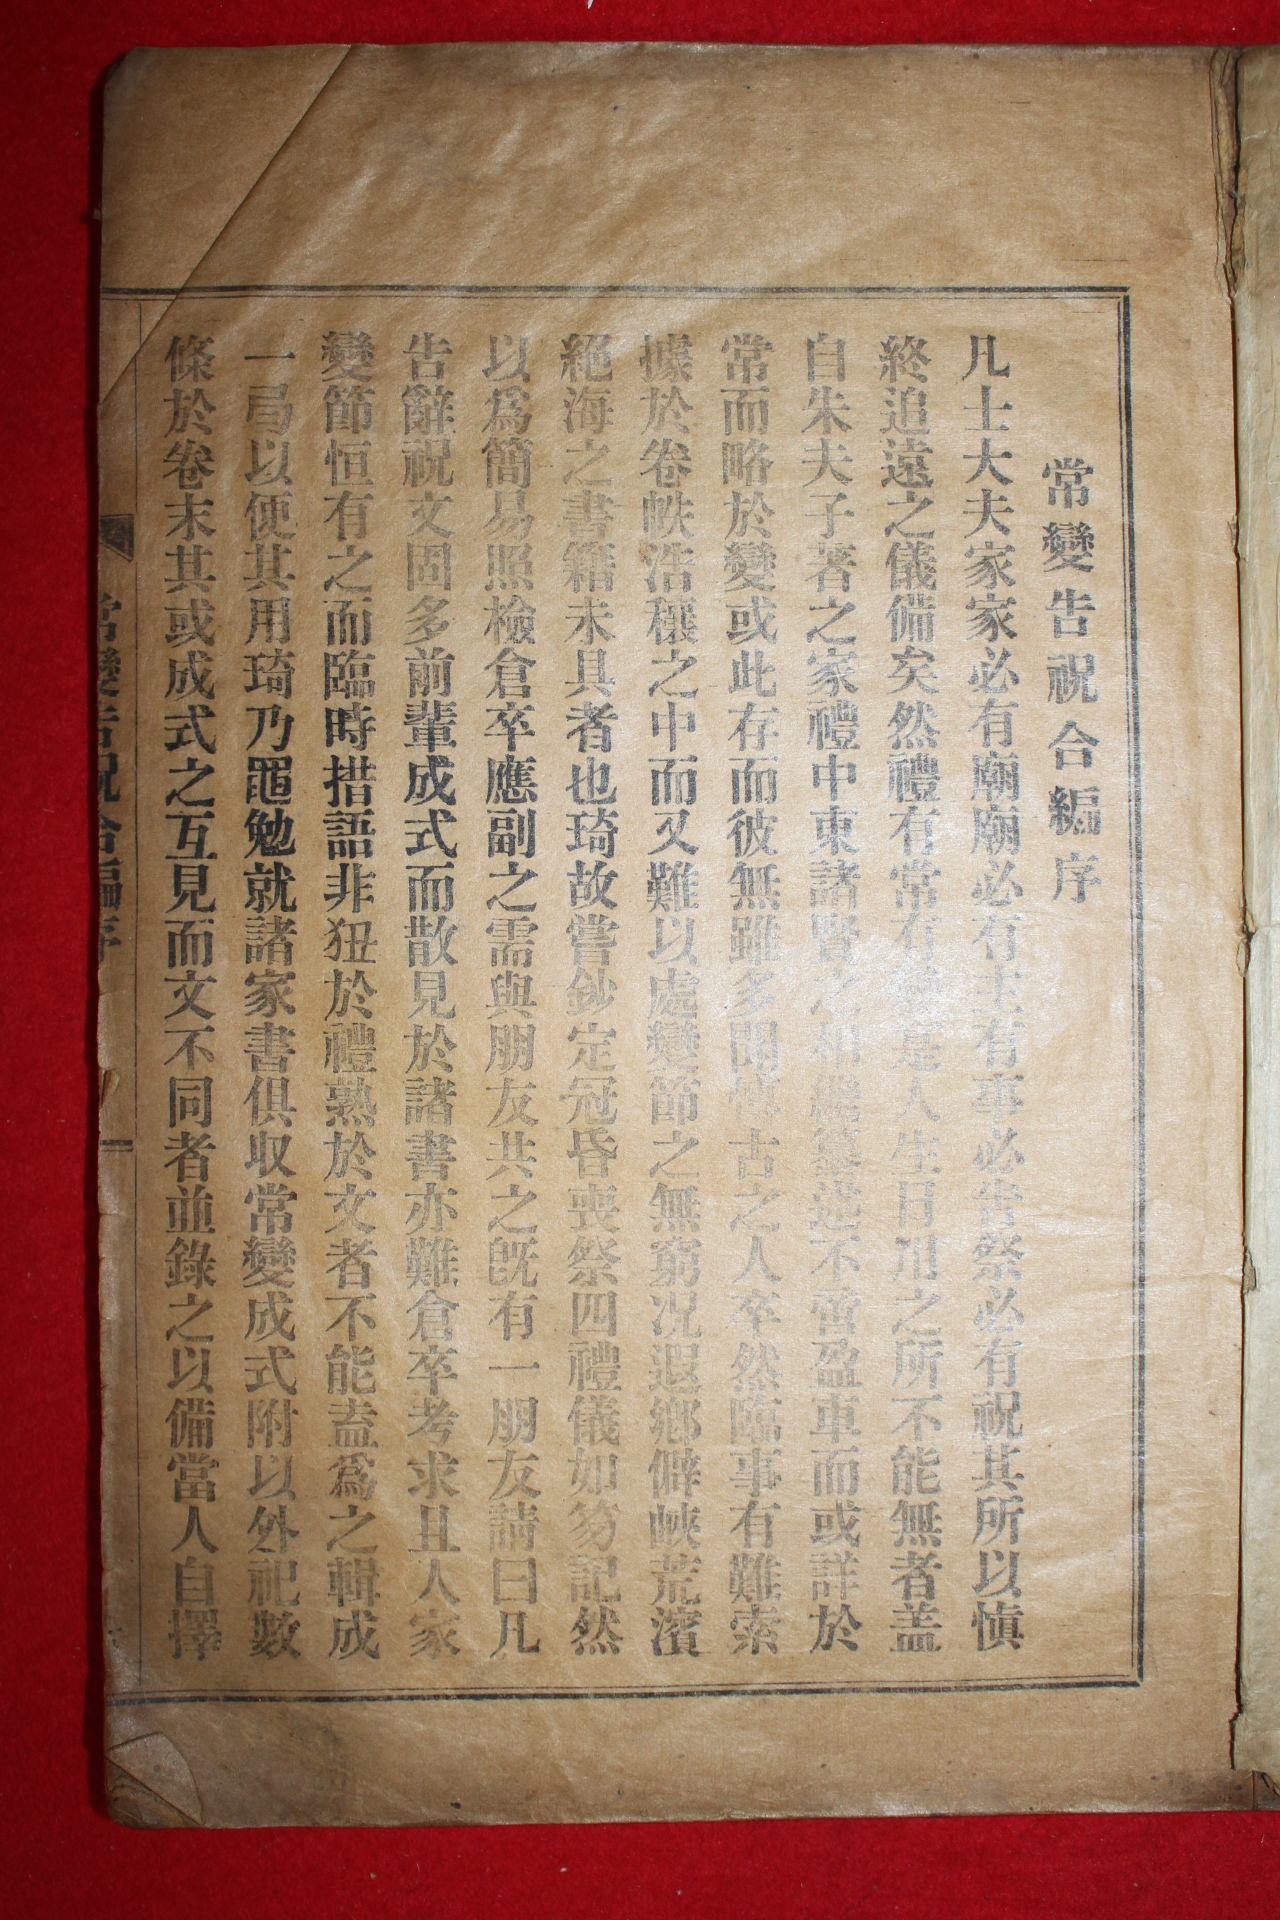 常變告祝合編序
凡士大夫家家必有廟廟必有主有事必告祭必有祝其所以愼
終追遠之儀備矣然禮有常有變是人生日用之所不能無者盖
自朱夫子著之家禮中東諸賢之相繼纂述不啻盈車而或詳於
常而略於變或此存而彼無雖多聞博古之人卒然臨事有難索
據於卷帙浩穰之中而又難以處變節之無窮况遐鄕僻峽荒濱
絕海之書籍未具者也琦故嘗鈔定冠昏喪祭四禮儀如笏記然
以爲簡易照檢倉卒應副之需與朋友共之旣有一朋友請曰凡
告辭祝文固多前輩成式而散見於諸書亦難倉卒考求且人家
變節恒有之而臨時措語非狃於禮熟於文者不能盍爲之輯成
一局以便其用琦乃黽勉就諸家書俱取常變成式附以外祀數
條於卷末其或成式之互見而文不同者並錄之以備當人自擇
常變告祝合編序